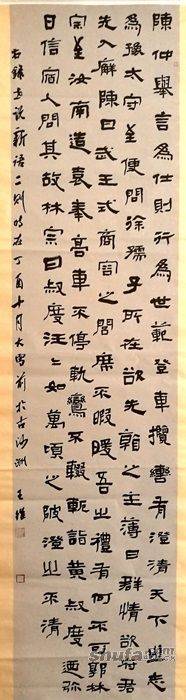 陳仲舉言為仕則行為世範登車攬轡有澄清天下之志
為豫太守至便問徐孺子所在欲先之主薄曰群情欲府君
先入廨陳曰武王式商容之閭席不暇暖吾之禮有何不可郭林
宗至汝南造袁奉高車不停軌鸞不輟軛詣黃叔度迺弥
日信宿人問其故林宗曰叔度汪汪如萬頃之陂澄之不清
右録世说新语二则时在丁酉十月大雪前於古海州王
shufa.com